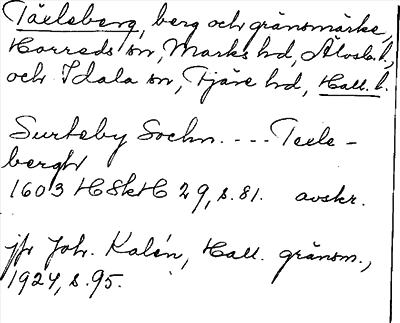 Täelsberg, berg och gränsmärke,
Horreds sn, Marks hd, Älvsb. l.,
och Idala sn, Fjäre hd, Hall. l.
Surteby Sochn. .... Teels-
bergh
1603 HSkH 29, s. 81. avskr.
jfr Joh. Kalén, Hall. gränsm.,
1924, s. 95.